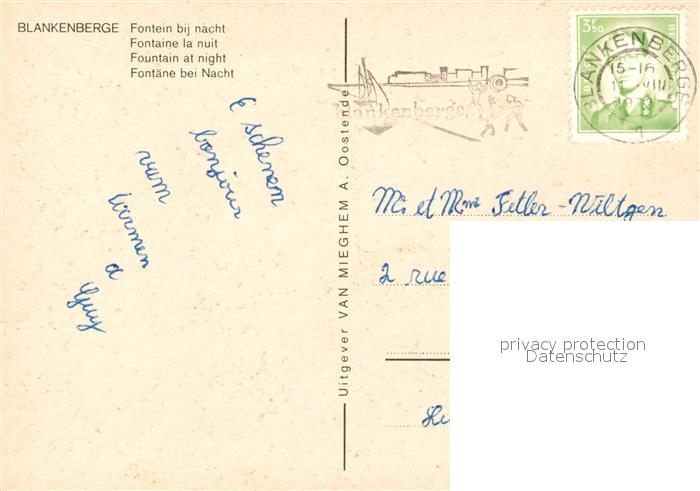 BLANKENBERGE Fontein bij nacht
Fontaine la nuit
Fountain at night
Fontäne bei Nacht
E schenem
bonjour
vum
Carmen
a
Guy
Uitgever VAN MIEGHEM A. Oostende
Blankenberge
3F50
BLANKENBERGE
15-16
VIII
1
Mr et Mme Fetler-Wiltgen
2 rue
privacy protection
Datenschutz